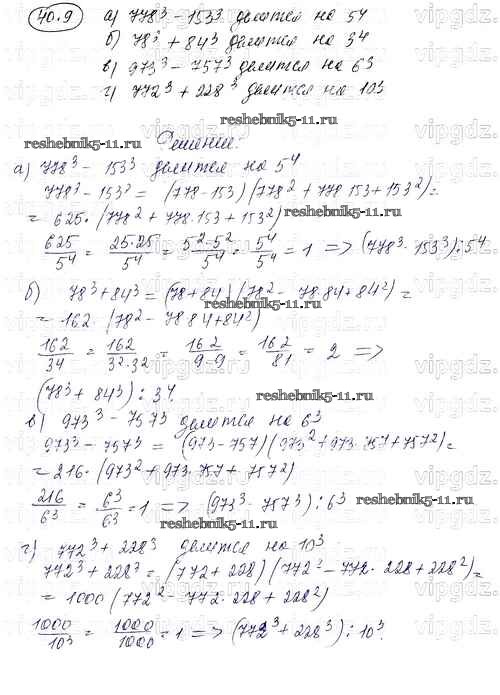 40.9 а) 778³ - 153³ делится на 5⁴
б) 78³ + 84³ делится на 3⁴
в) 973³ - 757³ делится на 6³
г) 772³ + 228³ делится на 10³
reshebnik5-11.ru
Решение:
reshebnik5-11.ru
а) 778³ - 153³ делится на 5⁴
778³ - 153³ = (778-153)(778² + 778·153 + 153²) =
= 625·(778² + 778·153 + 153²)
625/5⁴ = 25·25/5⁴ = 5²·5²/5⁴ = 5⁴/5⁴ = 1 => (778³ - 153³) ⋮ 5⁴
б) 78³ + 84³ = (78+84)(78² - 78·84 + 84²) =
reshebnik5-11.ru
= 162·(78² - 78·84 + 84²)
162/3⁴ = 162/3²·3² = 162/9·9 = 162/81 = 2 =>
(78³ + 84³) ⋮ 3⁴.
reshebnik5-11.ru
в) 973³ - 757³ делится на 6³
973³ - 757³ = (973-757)(973² + 973·757 + 757²) =
= 216·(973² + 973·757 + 757²)
216/6³ = 6³/6³ = 1 => (973³ - 757³) ⋮ 6³
reshebnik5-11.ru
reshebnik5-11.ru
г) 772³ + 228³ делится на 10³
772³ + 228³ = (772 + 228)(772² - 772·228 + 228²) =
= 1000(772² - 772·228 + 228²)
1000/10³ = 1000/1000 = 1 => (772³ + 228³) ⋮ 10³.